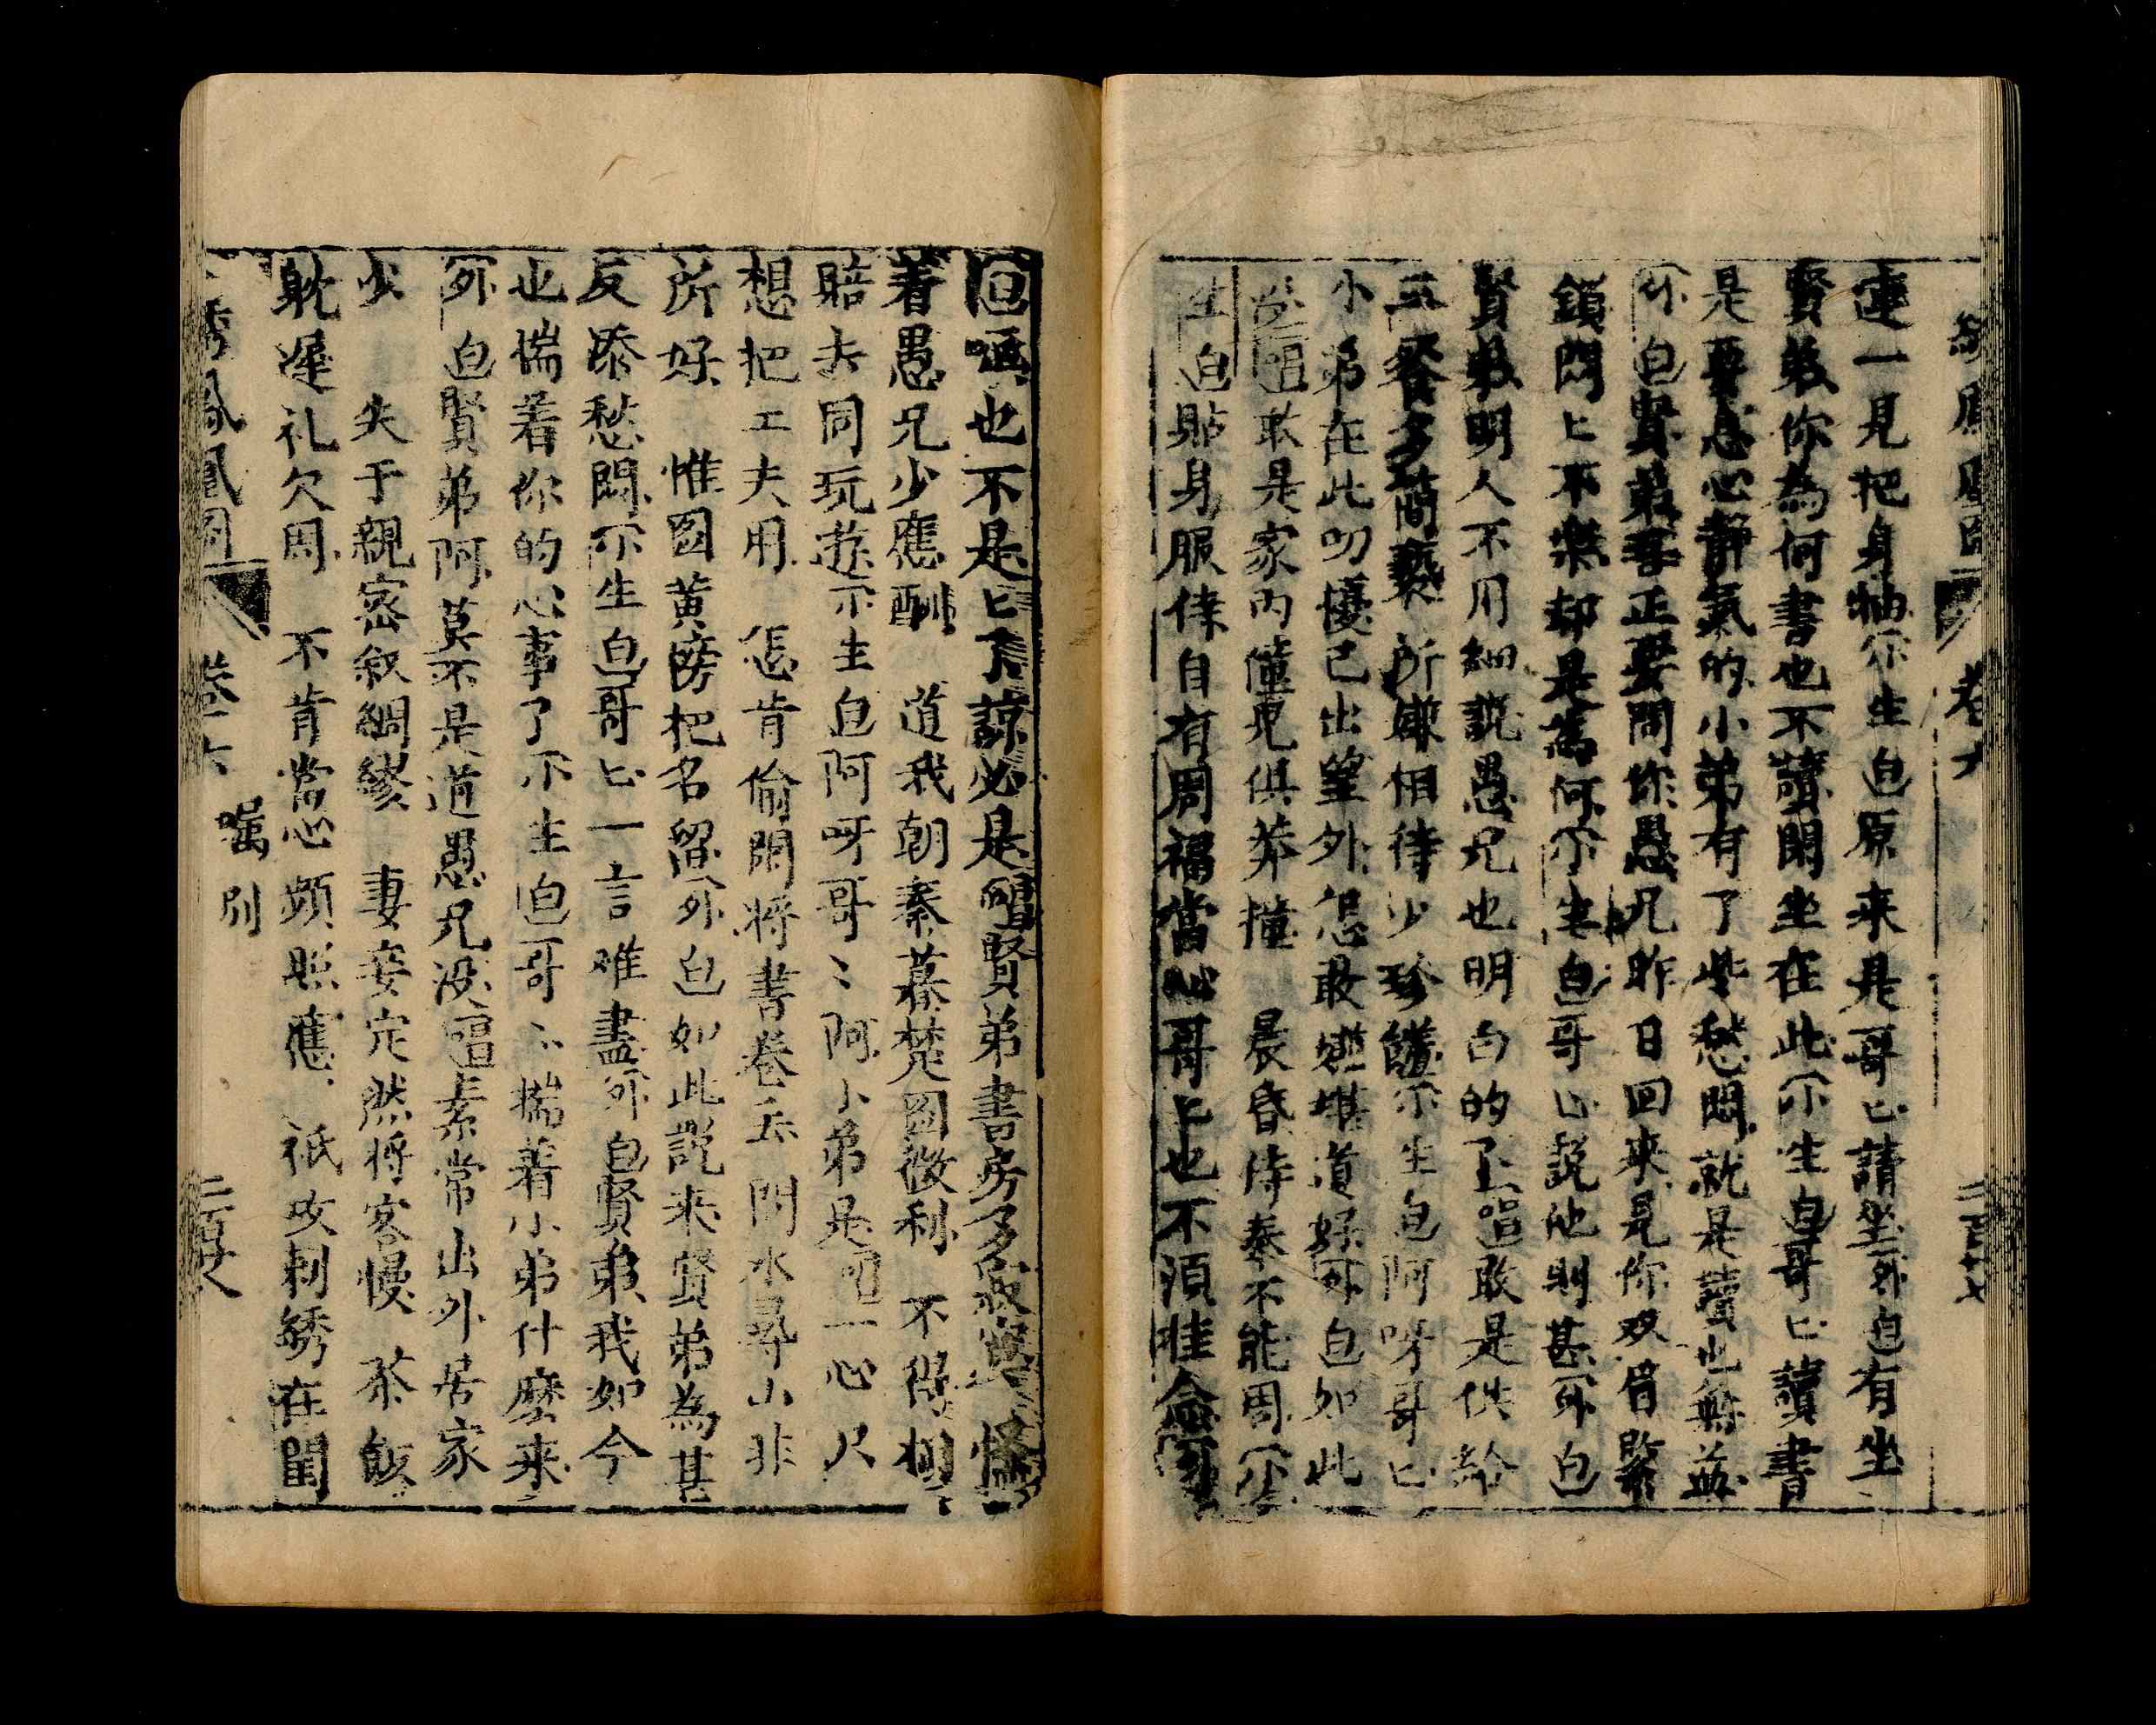 繡鳳凰圖 卷六 二百廿七
連一見把身抽尒生白原来是哥匕請坐外白有坐
賢弟你為何書也不讀閑坐在此尒生白哥匕讀書
是要息心静氣的小弟有了些愁悶就是讀也無益
外白賢弟吾正要問你愚兄昨日回来見你双眉緊
鎖悶匕不樂却是為何尒生白哥匕説他則甚外白
賢弟明人不用細説愚兄也明白的了唱敢是供給
三餐多簡褻 所嫌相待少珍饈尒生白阿呀哥匕
小弟在此叨擾已出望外怎敢嫌堪道好外白如此
唱敢是家内僮兒俱莽撞 晨昏侍奉不能周尒
生白貼身服侍自有周福當心哥匕也不須佳念
白嗄也不是匕了諒必是唱賢弟書房多寂寞 怪
着愚兄少應酬 道我朝秦暮楚圖微利 不得相
賠去同玩遊尒生白阿呀哥〻阿小弟是唱一心只
想把工夫用 怎肯偷閑將書卷丢 問水尋山非
所好 惟圖黄榜把名留外白如此説来賢弟為甚
反添愁悶尒生白哥匕一言难盡外白賢弟我如今
也揣着你的心事了尒生白哥〻揣着小弟什麽来
外白賢弟阿莫不是道愚兄没唱素常出外居家
少 失于親密叙綢繆 妻妾定然將客慢 茶飯
躭遲礼欠周 不肯當心頻照應 祇攻刺綉在閨
繡鳳凰圖 卷六 囑別 二百廿八